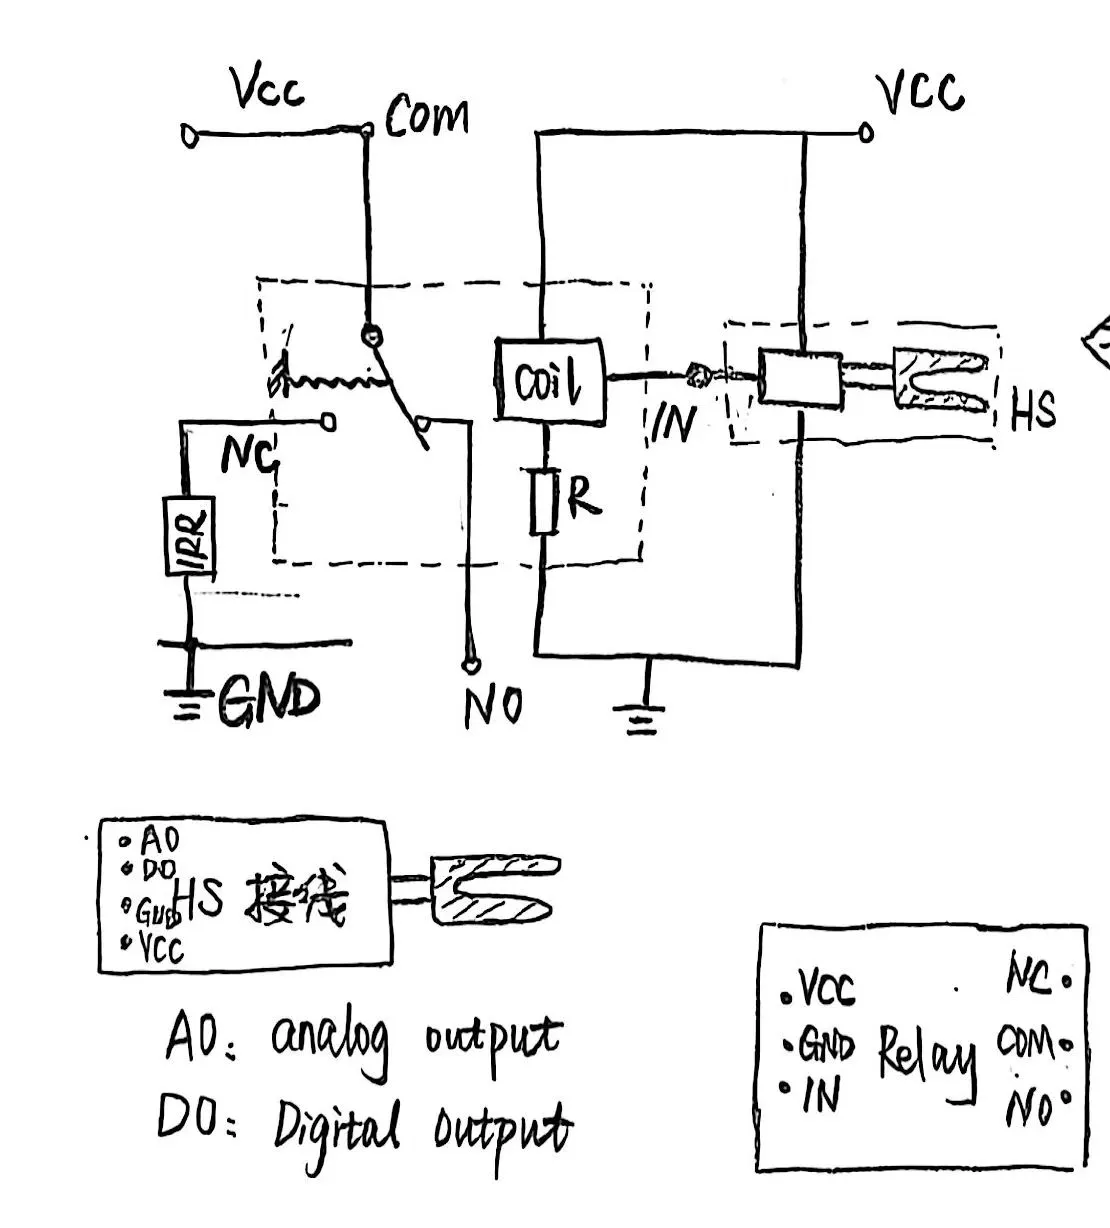 Vcc
Com
VCC
Coil
IN
HS
NC
R
IRR
GND
NO
A0
D0
GND
VCC
HS 接线
A0: analog output
D0: Digital output
VCC
GND
IN
Relay
NC
COM
NO